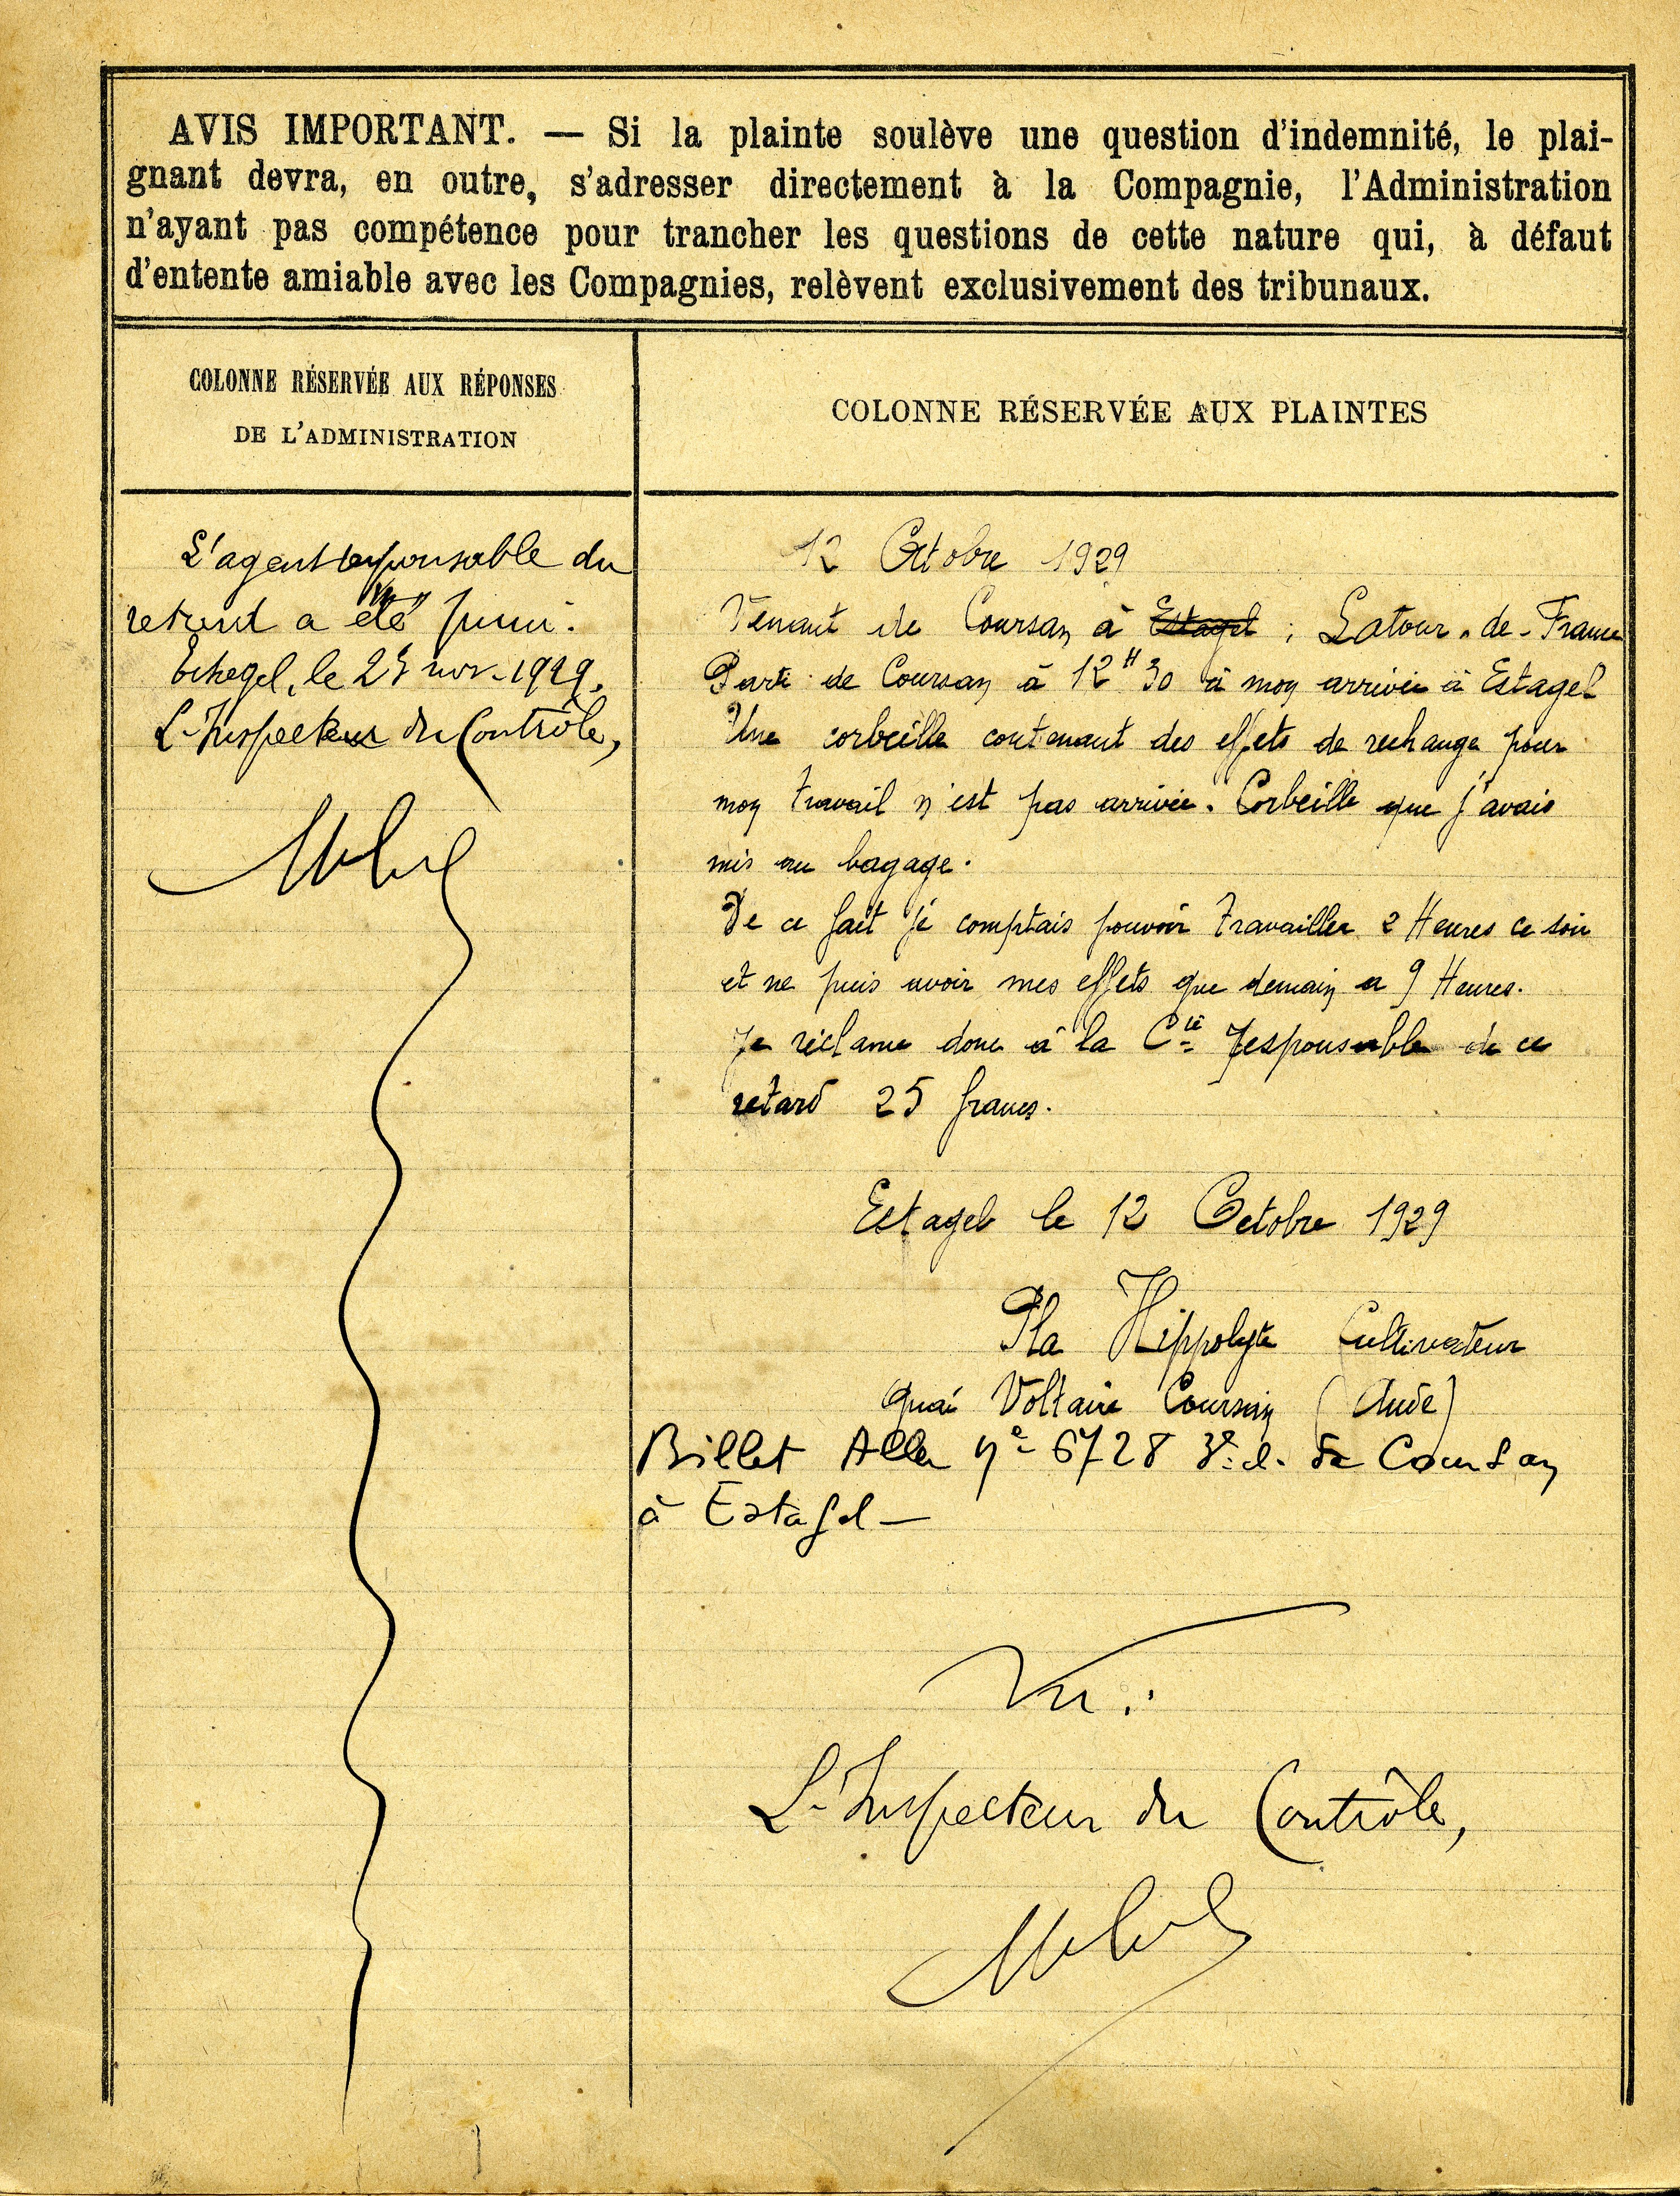 AVIS IMPORTANT. — Si la plainte soulève une question d'indemnité, le plai-
gnant devra, en outre, s'adresser directement à la Compagnie, l'Administration
n'ayant pas compétence pour trancher les questions de cette nature qui, à défaut
d'entente amiable avec les Compagnies, relèvent exclusivement des tribunaux.
COLONNE RÉSERVÉE AUX RÉPONSES
DE L'ADMINISTRATION
L'agent responsable du
retard a été puni.
le nov. 1929.
L'Inspecteur du Contrôle,
COLONNE RÉSERVÉE AUX PLAINTES
12 Octobre 1929
Venant de Coursan à Estagel ; Latour-de-France
Parti de Coursan à 12H30 à mon arrivée à Estagel
Une corbeille contenant des effets de rechange pour
mon travail n'est pas arrivée. Corbeille que j'avais
mis au bagage.
De ce fait je comptais pouvoir travailler 2 Heures ce soir
et ne puis avoir mes effets que demain a 9 Heures.
Je réclame donc à la Cie responsable de ce
retard 25 francs.
Estagel le 12 Octobre 1929
Pla Hippolyte Cultivateur
Quai Voltaire Coursan (Aude)
Billet Aller no 6728 3e cl. de Coursan
à Estagel —
Vu :
L'Inspecteur du Contrôle,